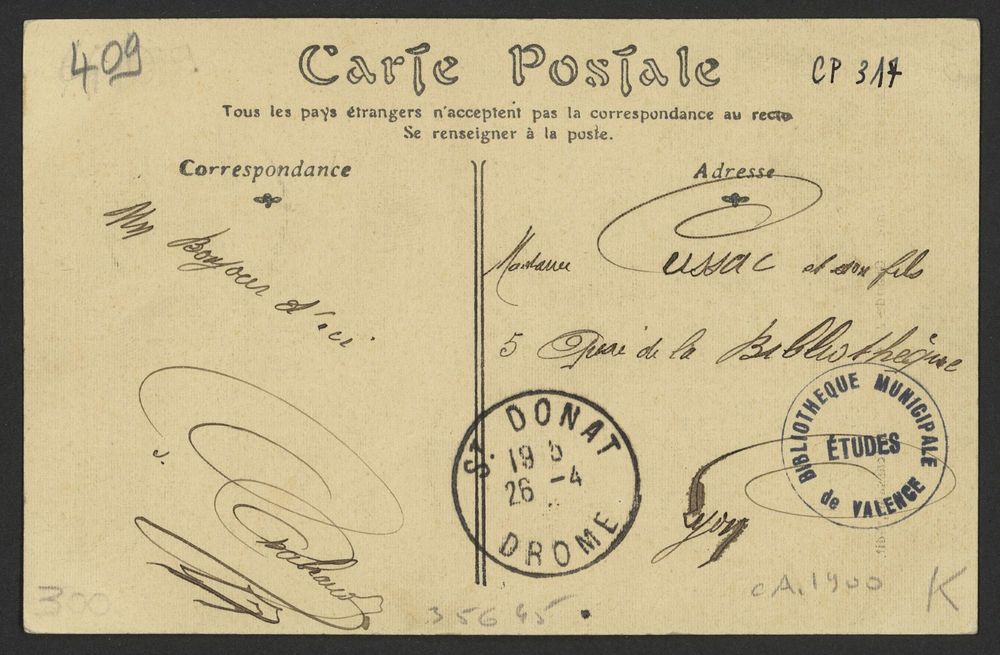 409
Carte Postale
CP 317
Tous les pays étrangers n'acceptent pas la correspondance au recto
Se renseigner à la poste.
Correspondance
Bonjour d'ici
Adresse
Madame Cussac et son fils
5 Quai de la Bibliothèque
Lyon
ST. DONAT
19
26 -4
DROME
BIBLIOTHEQUE MUNICIPALE
ÉTUDES
de VALENCE
300
35645
CA.1900
K